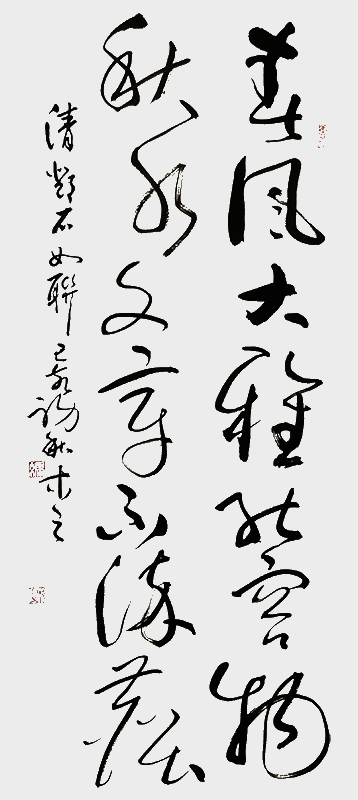 春風大雅能容物
秋水文章不染塵
清鄧石如聯己亥秋木